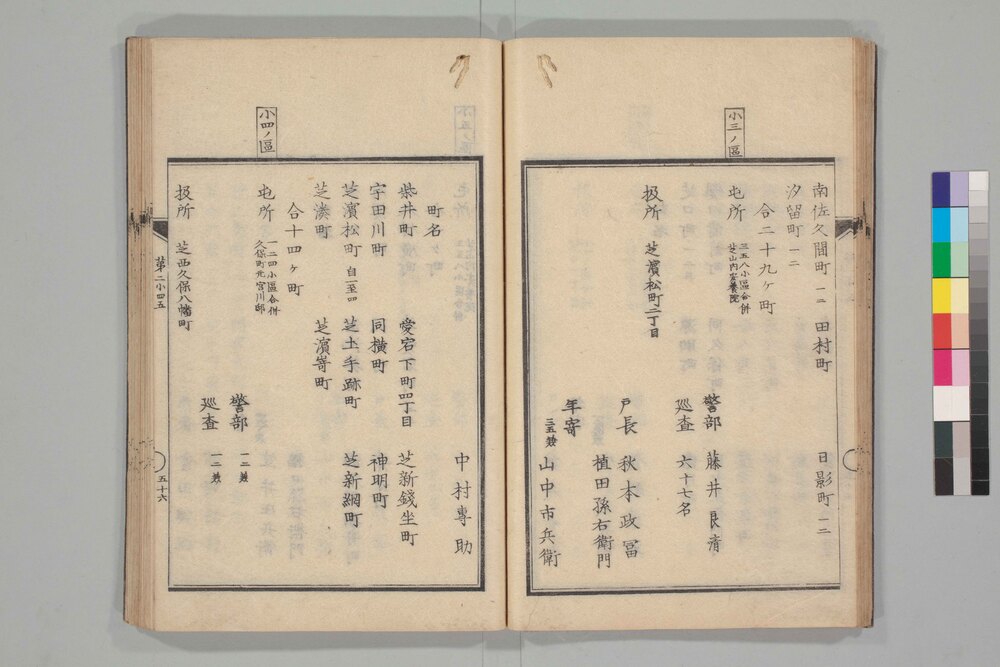 南佐久間町 一二 田村町 日影町 一二
汐留町 一二
合二十九ケ町
小三ノ區
屯所 三五八小區合併
芝山内
警部 藤井良済
巡査 六十七名
扱所 芝濱松町二丁目
戸長 秋本政冨
植田孫右衛門
年寄
三五兼 山中市兵衛
中村專助
町名
柴井町 愛宕下町四丁目 芝新錢坐町
宇田川町 同横町 神明町
芝濱松町 自一至四 芝土手跡町 芝新網町
芝湊町 芝濱嵜町
合十四ヶ町
小四ノ區
屯所 一二四小區合併
久保町元宮川邸
警部 一二兼
巡査 一二兼
扱所 芝西久保八幡町
第二小四五
五十六